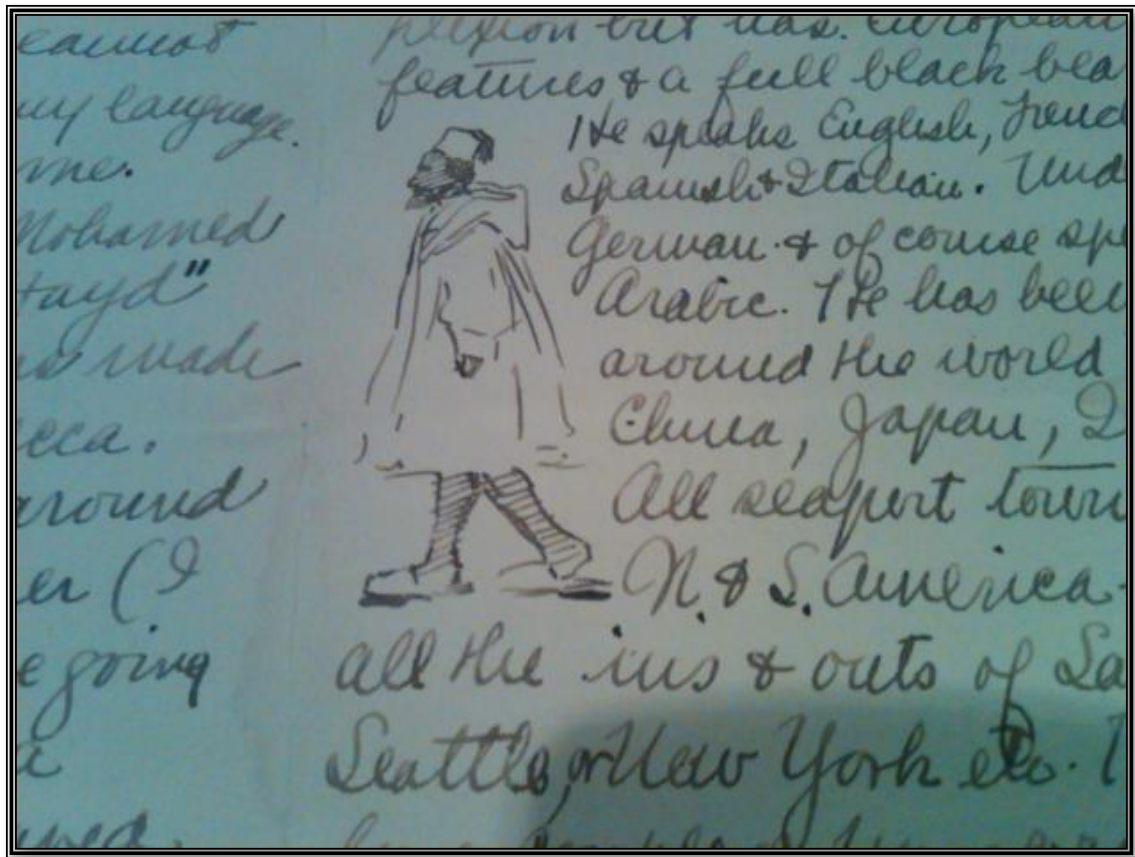 cannot
my language.
me.
Mohamed
tayd"
made
cca.
around
er (I
e going
a
plexion but has European
features & a full black bea
He speaks English, Frenc
Spanish & Italian. Und
German & of course spe
Arabic. He has been
around the world
China, Japan, I
All seaport town
N. & S. America
all the ins & outs of Sa
Seattle, or New York etc.